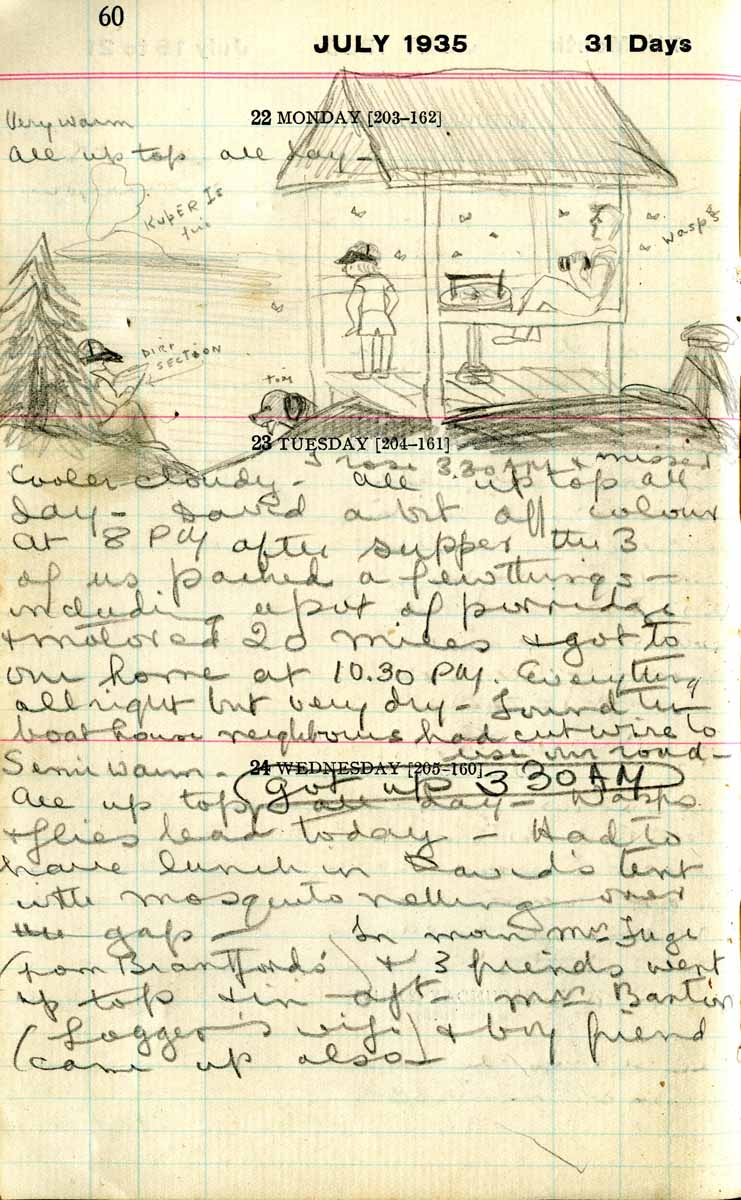 60
JULY 1935 31 Days
22 MONDAY [203–162]
Very warm
all up top all day –
KUPER Is
wasps
DIRT
SECTION
Tom
23 TUESDAY [204–161]
I rose 3.30 AM & missed
Cooler cloudy – all up top all
day – David a bit off colour
at 8 PM after supper the 3
of us packed a few things –
including a pot of porridge
& motored 20 miles & got to
our home at 10.30 PM. Everything
all right but very dry – Found the
boat house neighbours had cut wire to
use our road –
24 WEDNESDAY [205–160]
Semi warm – got up 3 30 AM
all up top all day – Wasps
& flies bad today – Had to
have lunch in David's tent
with mosquito netting over
the gap – In morn Mrs
(from Brantfords') & 3 friends went
up top & in aft – Mrs Barton
(Logger's wife) & boy friend
came up also –